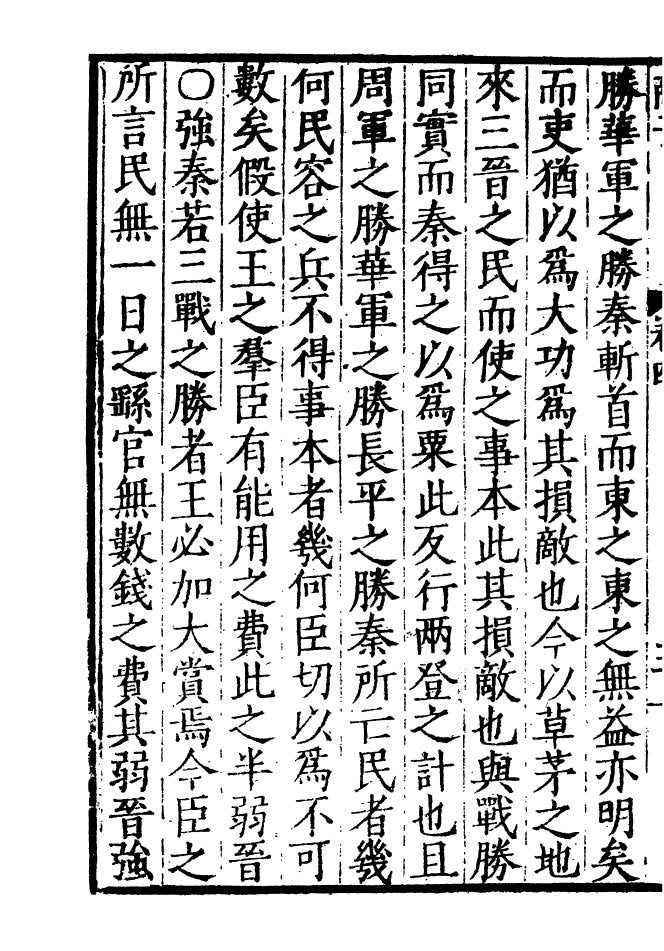 勝華軍之勝秦斬首而東之東之無益亦明矣
而吏猶以爲大功爲其損敵也今以草茅之地
來三晉之民而使之事本此其損敵也與戰勝
同實而秦得之以爲粟此反行兩登之計也且
周軍之勝華軍之勝長平之勝秦所亡民者幾
何民容之兵不得事本者幾何臣切以爲不可
數矣假使王之羣臣有能用之費此之半弱晉
〇強秦若三戰之勝者王必加大賞焉今臣之
所言民無一日之繇官無數錢之費其弱晉強